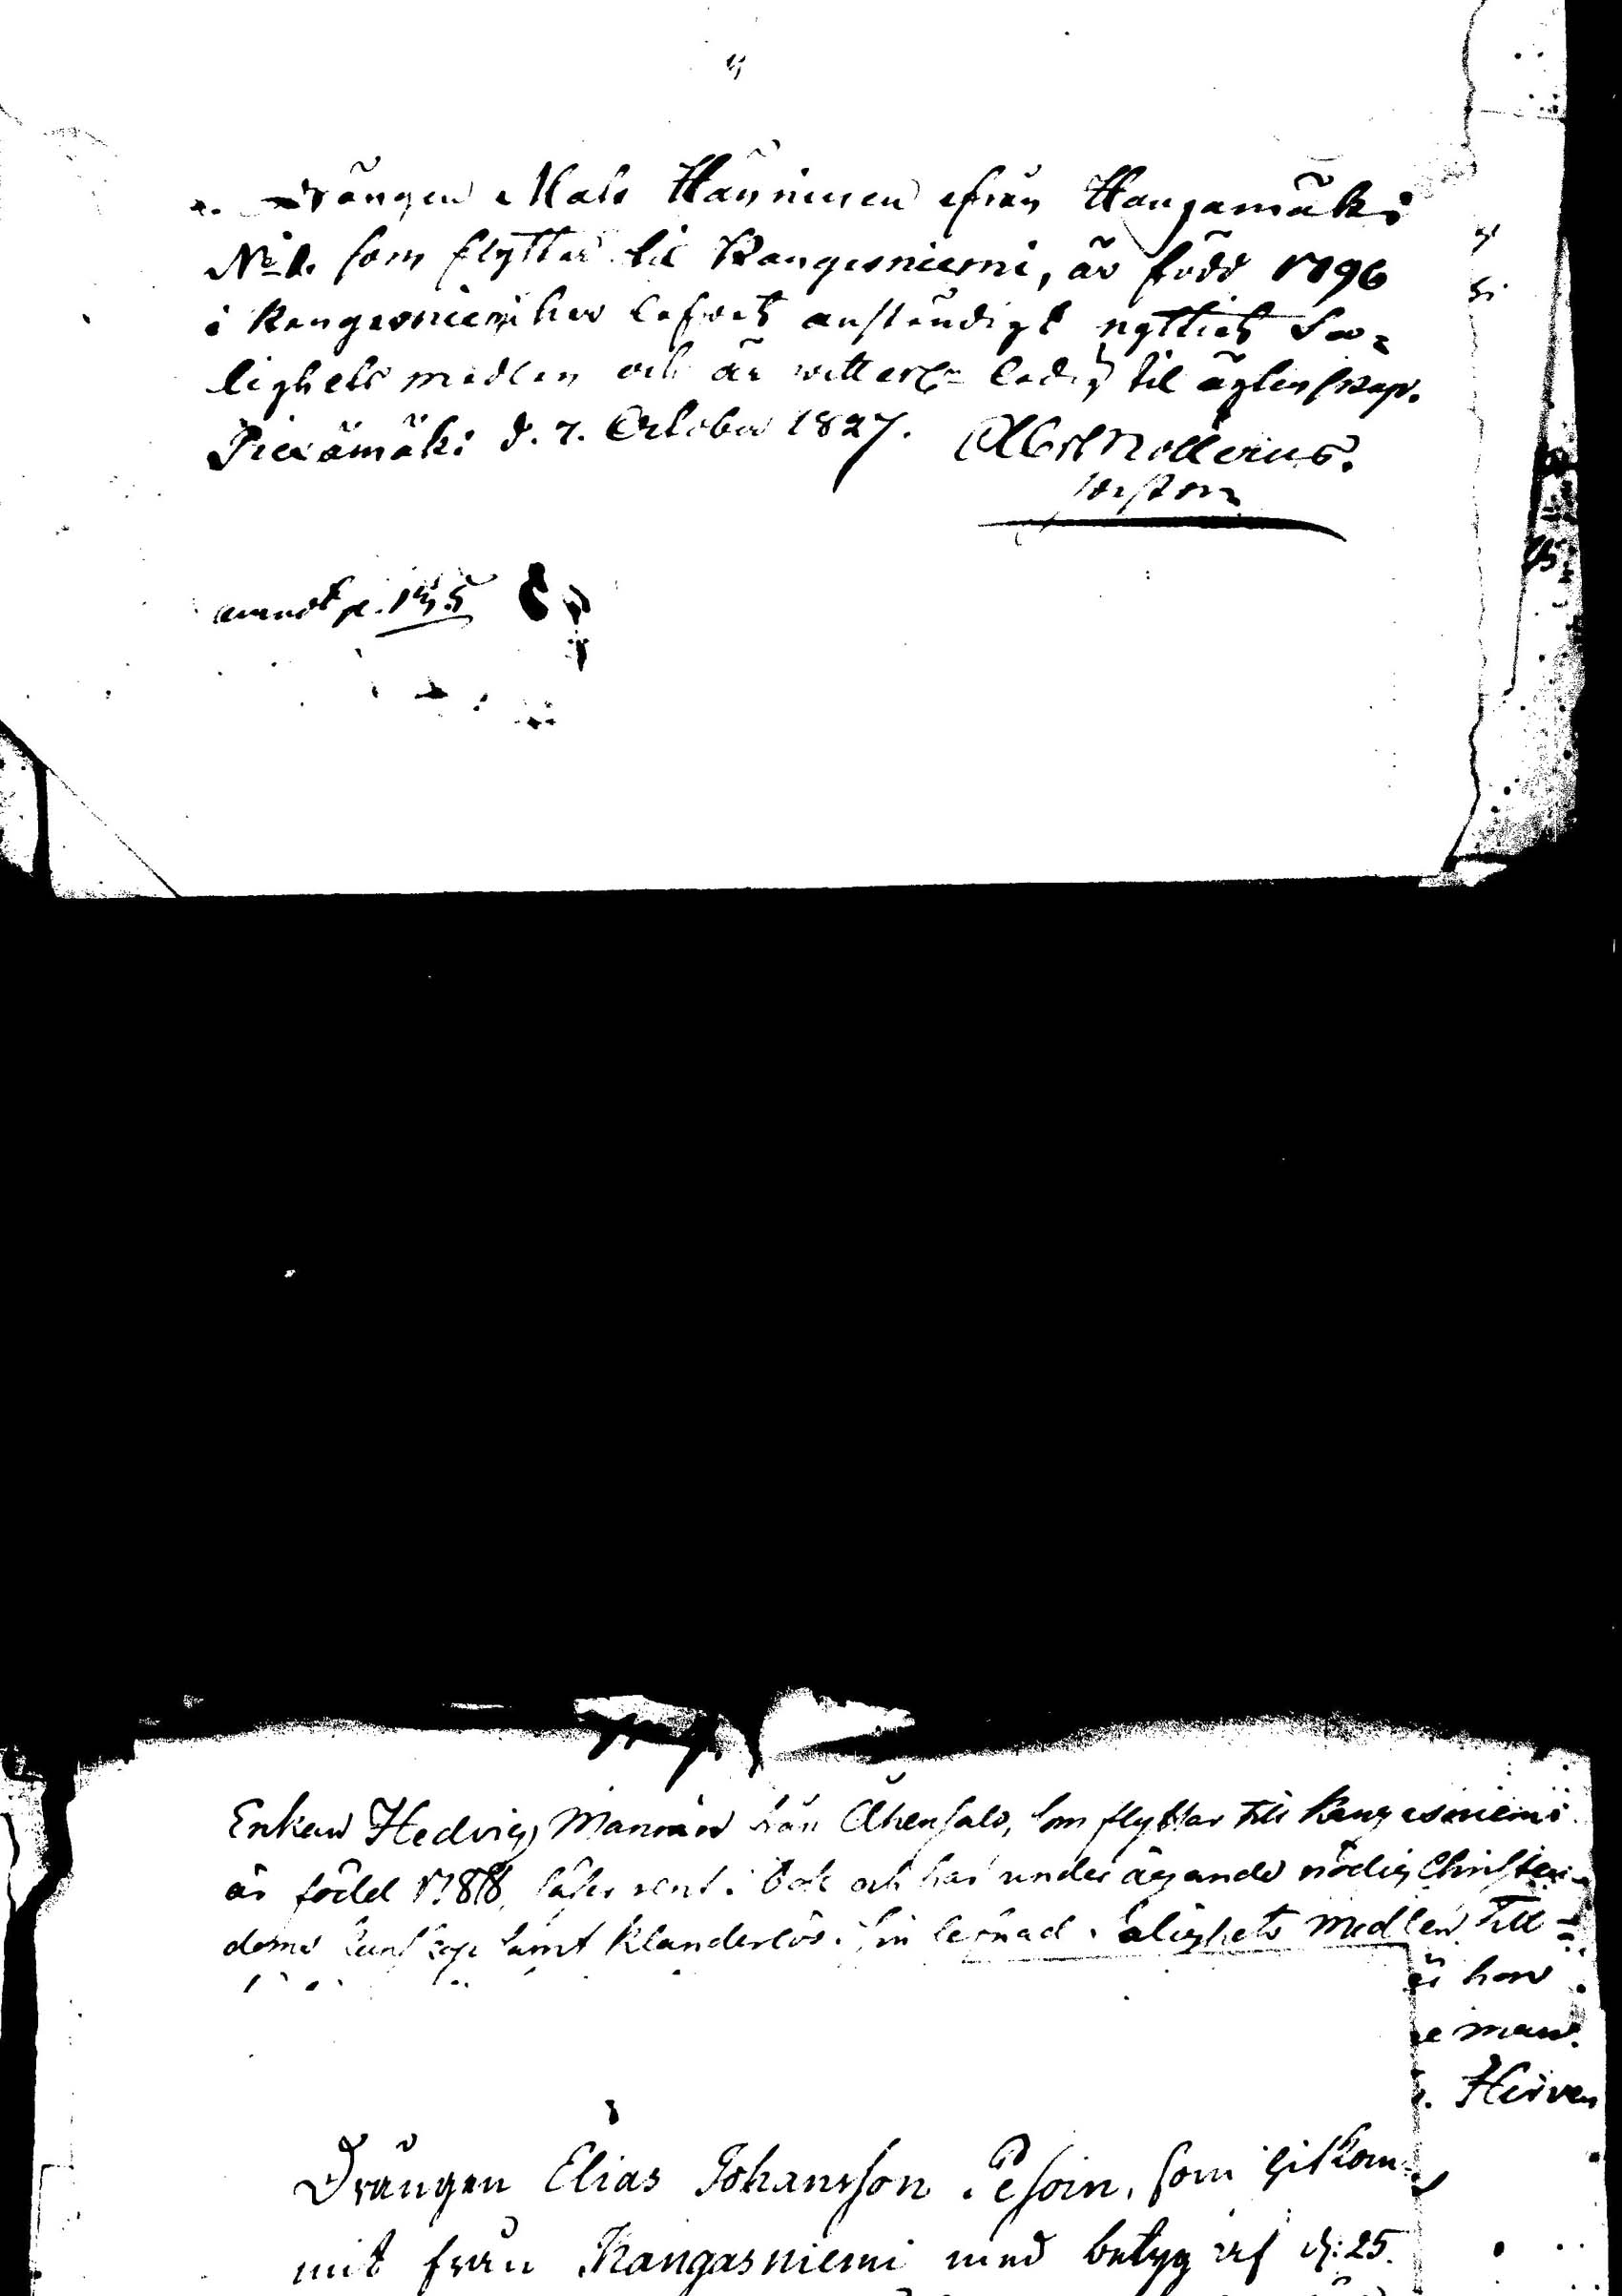 Drängen Mats Hänninen ifrån Haugamäki
No 1. som flyttar til Kangasniemi, är född 1796
i Kangasniemi har lefvat anständigt nyttiat Sa=
lighets medlen och är witterl: ledig til ägtenskap.
Piexämäki d. 7. October 1827.
p. 135
Enkan Hedvig Manin från som flyttar till Kangasniemi
är född 1788, läser rent i Bok och har underägande nödig Christen-
doms kunskap samt klanderlös i sin lefnad. Salighets Medlen till=
är han
man.
Hirven
Drängen Elias Johansson Pesoin, som hitkom-
mit från Kangasniemi med betyg af d: 25.